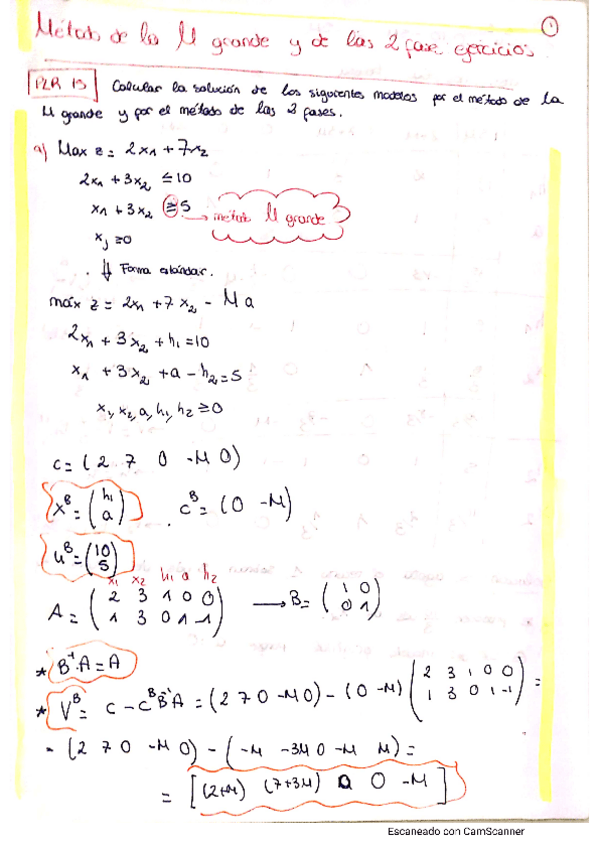 ①
Método de la M grande y de las 2 fase ejercicios.
PLR 13 Calcular la solución de los siguientes modelos por el método de la
M grande y por el método de las 2 fases.
a) Max z = 2x₁ + 7x₂
2x₁ + 3x₂ ≤ 10
x₁ + 3x₂ ≥ 5 → método M grande
xⱼ ≥ 0
⇓ Forma estándar.
máx z = 2x₁ + 7x₂ - Ma
2x₁ + 3x₂ + h₁ = 10
x₁ + 3x₂ + a - h₂ = 5
x₁, x₂, a, h₁, h₂ ≥ 0
c = (2 7 0 -M 0)
xᴮ = (h₁ a) cᴮ = (0 -M)
uᴮ = (10 5)
x₁ x₂ h₁ a h₂
A = (2 3 1 0 0
1 3 0 1 -1) → B = (1 0
0 1)
* B⁻¹·A = A
* Vᴮ = c - cᴮB⁻¹A = (2 7 0 -M 0) - (0 -M) (2 3 1 0 0
1 3 0 1 -1) =
= (2 7 0 -M 0) - (-M -3M 0 -M M) =
= [(2+M) (7+3M) 0 0 -M]
Escaneado con CamScanner